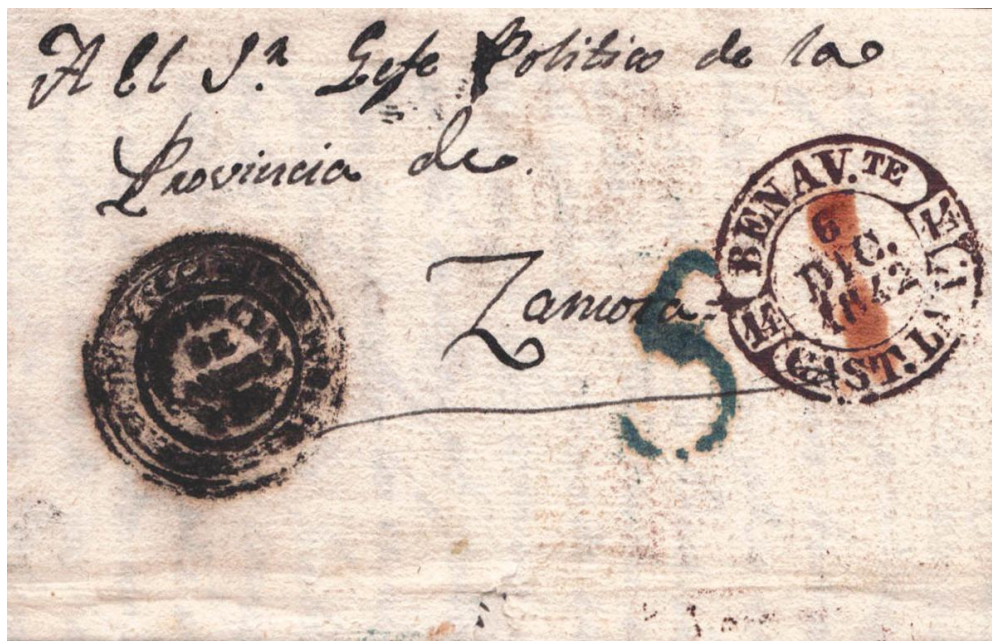 A El S.r Gefe Politico de la
Provincia de.
Zamora
S
BENAV.TE
6
DIC.
1842
14
14
CAST. LA V.
DE